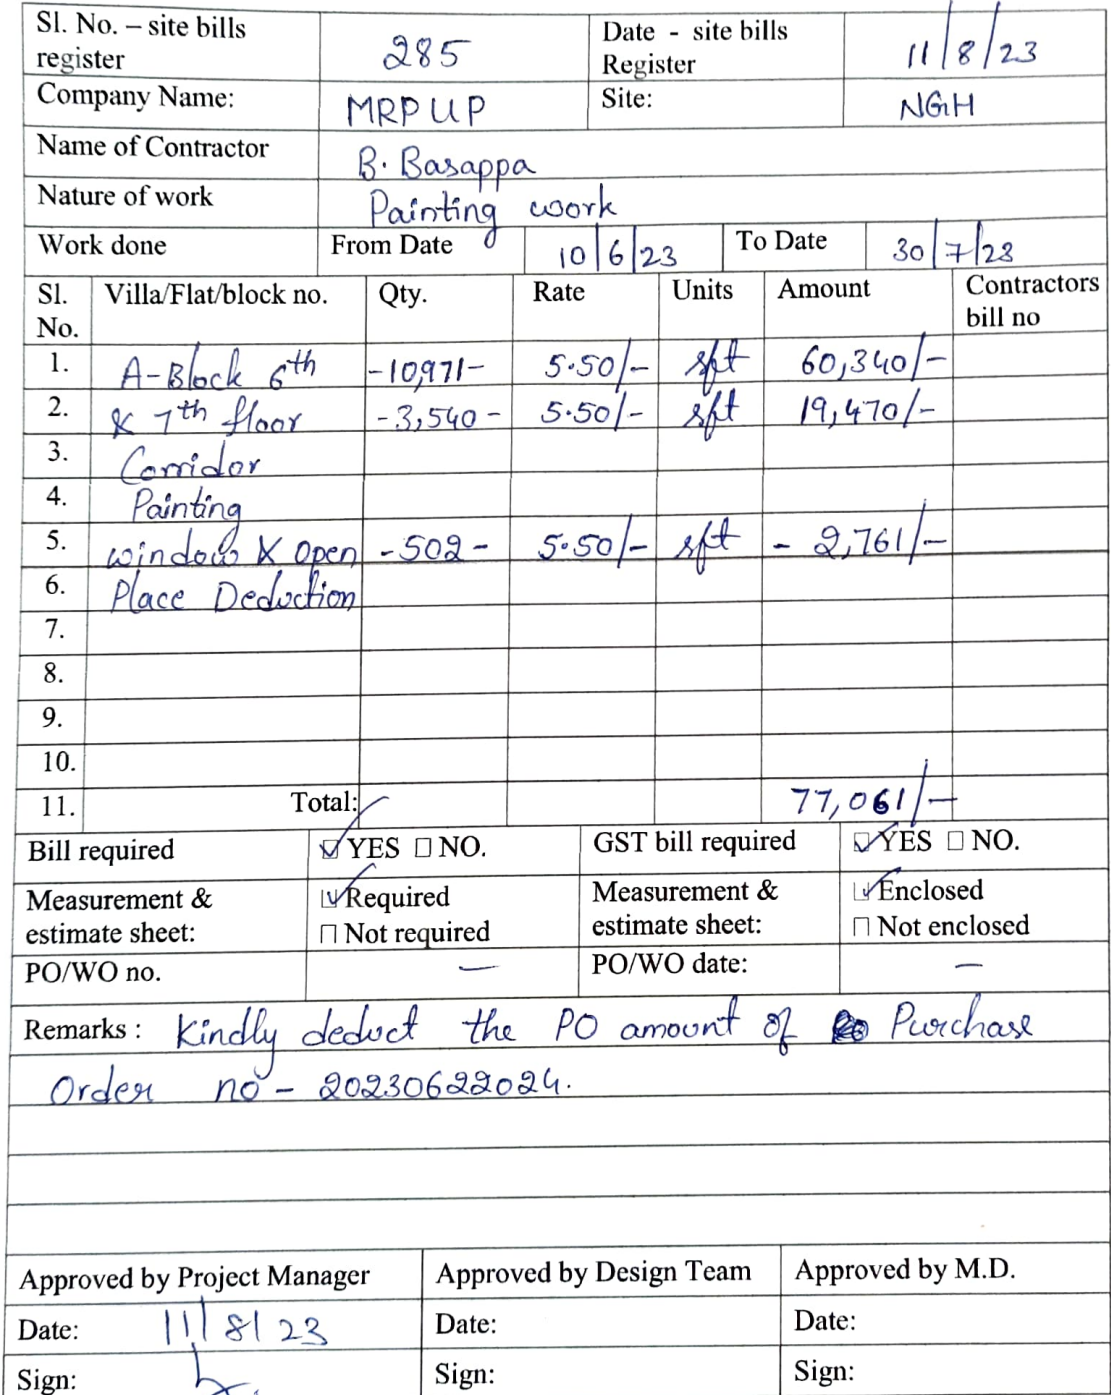 Sl. No. – site bills register 285 Date - site bills Register 11/8/23
Company Name: MRPUP Site: NGH
Name of Contractor B. Basappa
Nature of work Painting work
Work done From Date 10/6/23 To Date 30/7/23
Sl. No. Villa/Flat/block no. Qty. Rate Units Amount Contractors bill no
1. A-Block 6th -10,971- 5.50/- sft 60,340/-
2. & 7th floor -3,540- 5.50/- sft 19,470/-
3. Corridor
4. Painting
5. window & Open -502- 5.50/- sft - 2,761/-
6. Place Deduction
7.
8.
9.
10.
11. Total: 77,061/-
Bill required ☑ YES ☐ NO. GST bill required ☑ YES ☐ NO.
Measurement & estimate sheet: ☑ Required ☐ Not required Measurement & estimate sheet: ☑ Enclosed ☐ Not enclosed
PO/WO no. — PO/WO date: —
Remarks : Kindly deduct the PO amount of Purchase
Order no - 20230622024.
Approved by Project Manager Approved by Design Team Approved by M.D.
Date: 11/8/23 Date: Date:
Sign: Sign: Sign: